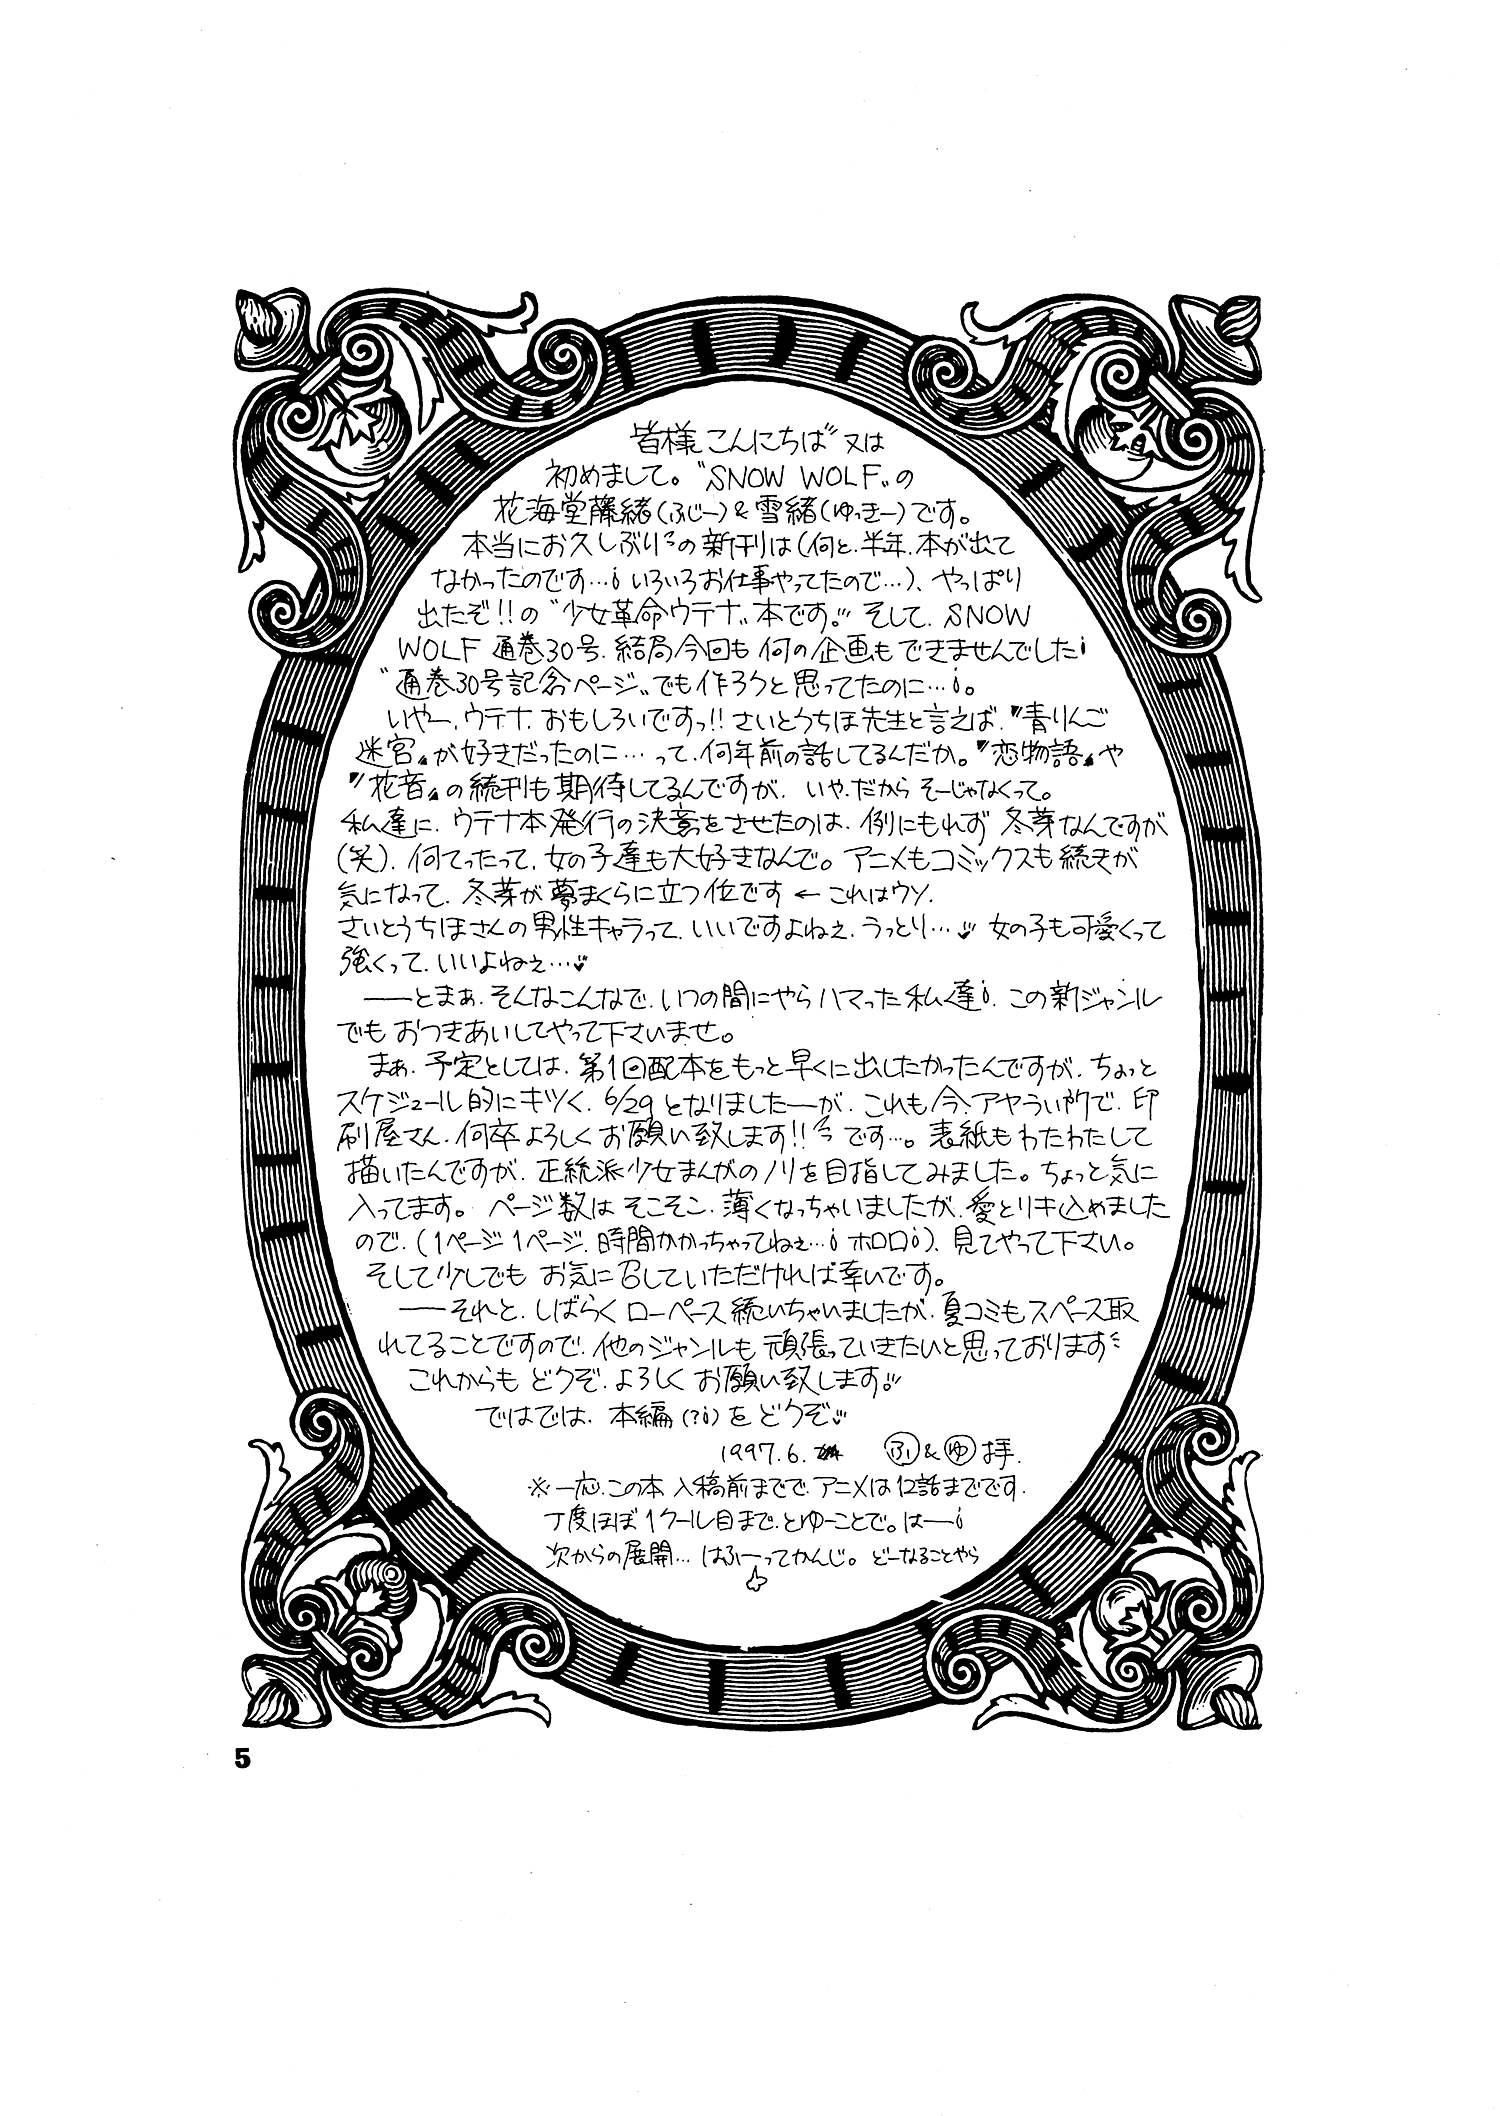 皆様こんにちは"又は
初めまして。"SNOW WOLF"の
花海堂藤緒(ふじー)&雪緒(ゆっきー)です。
本当にお久しぶりの新刊は(何と、半年、本が出て
なかったのです…! いろいろお仕事やってたので…)、やっぱり
出たぞ!!の"少女革命ウテナ"本です!! そして、SNOW
WOLF 通巻30号、結局今回も何の企画もできませんでした!
"通巻30号記念ページ"でも作ろうと思ってたのに…!。
いやー、ウテナ、おもしろいですっ!! さいとうちほ先生と言えば、『青りんご
迷宮』が好きだったのに…って、何年前の話してるんだか。『恋物語』や
『花音』の続刊も期待してるんですが、いや、だからそーじゃなくって。
私達に、ウテナ本発行の決意をさせたのは、例にもれず 冬芽なんですが
(笑)、何てったって、女の子達も大好きなんで。アニメもコミックスも続きが
気になって、冬芽が夢まくらに立つ位です ← これはウソ、
さいとうちほさんの男性キャラって、いいですよねぇ、うっとり…♥ 女の子も可愛くって
強くって、いいよねぇ…♥
――とまぁ、そんなこんなで、いつの間にやらハマった私達!、この新ジャンル
でもおつきあいしてやって下さいませ。
まぁ、予定としては、第1回配本をもっと早くに出したかったんですが、ちょっと
スケジュール的にキツく、6/29となりました―が、これも今、アヤうい所で、印
刷屋さん、何卒よろしくお願い致します!! です…。表紙もわたわたして
描いたんですが、正統派少女まんがのノリを目指してみました。ちょっと気に
入ってます。ページ数はそこそこ、薄くなっちゃいましたが、愛とリキ込めました
ので、(1ページ1ページ、時間かかっちゃってねぇ…! ホロロ!)、見てやって下さい。
そして少しでもお気に召していただければ幸いです。
――それと、しばらくローペース続いちゃいましたが、夏コミもスペース取
れてることですので、他のジャンルも頑張っていきたいと思っております
これからもどうぞ、よろしくお願い致します!!
ではでは、本編(?!)をどうぞ♥
1997.6. ふ&ゆ 拝.
※一応、この本 入稿前までで、アニメは12話までです.
丁度ほぼ1クール目まで、とゆーことで。は―!
次からの展開… はふーってかんじ。どーなることやら
5